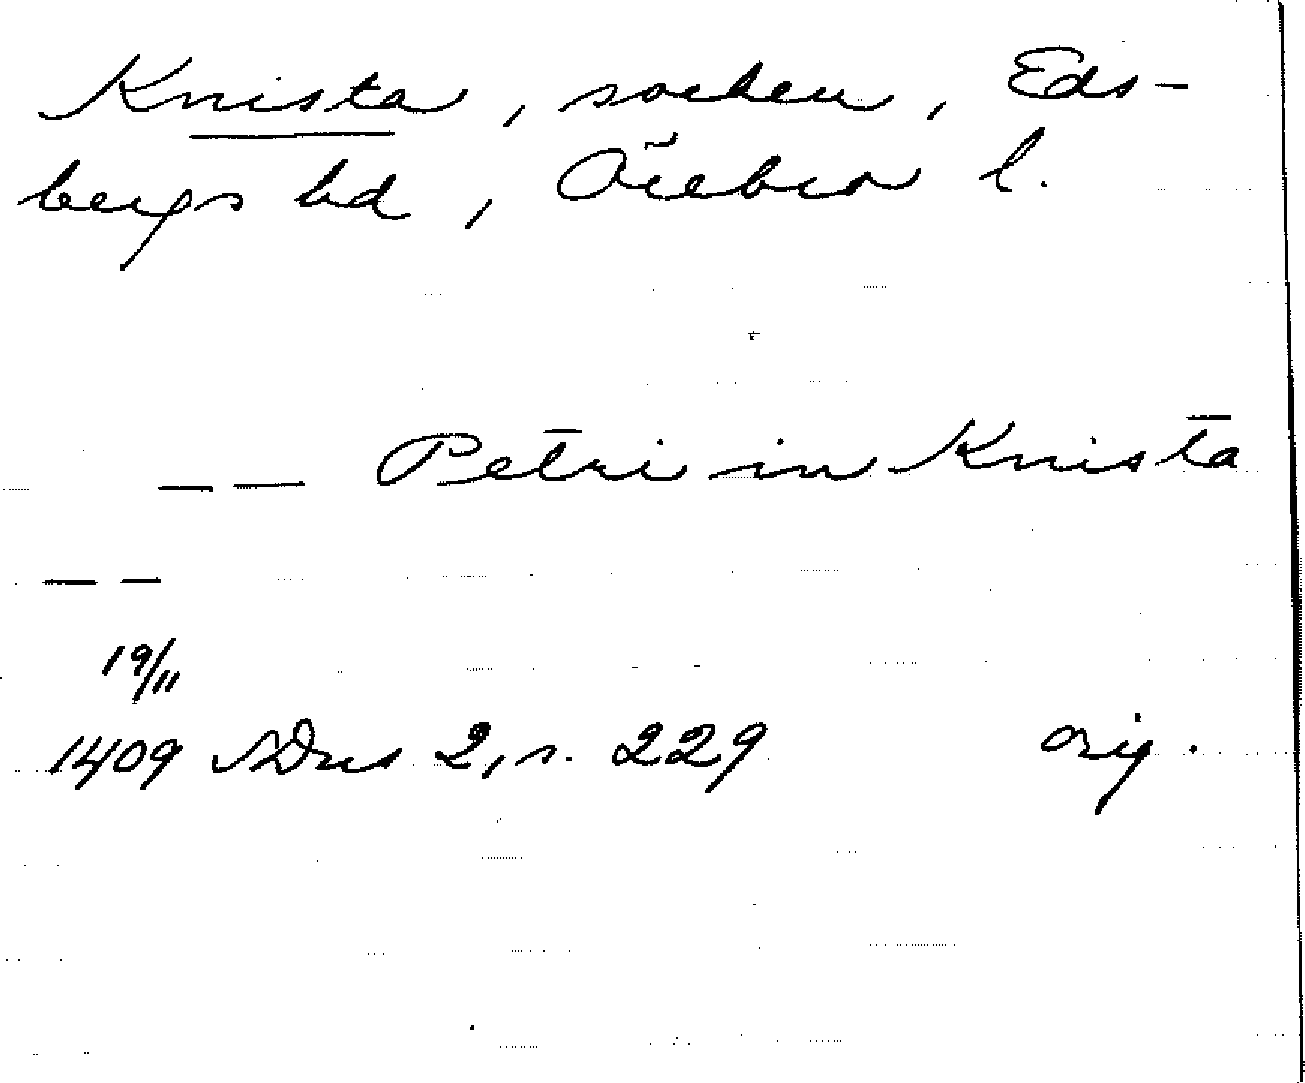 Knista, socken, Eds-
bergs hd, Örebro l.
— — Petri in Knista
— —
19/11
1409 SDns 2, s. 229 orig.